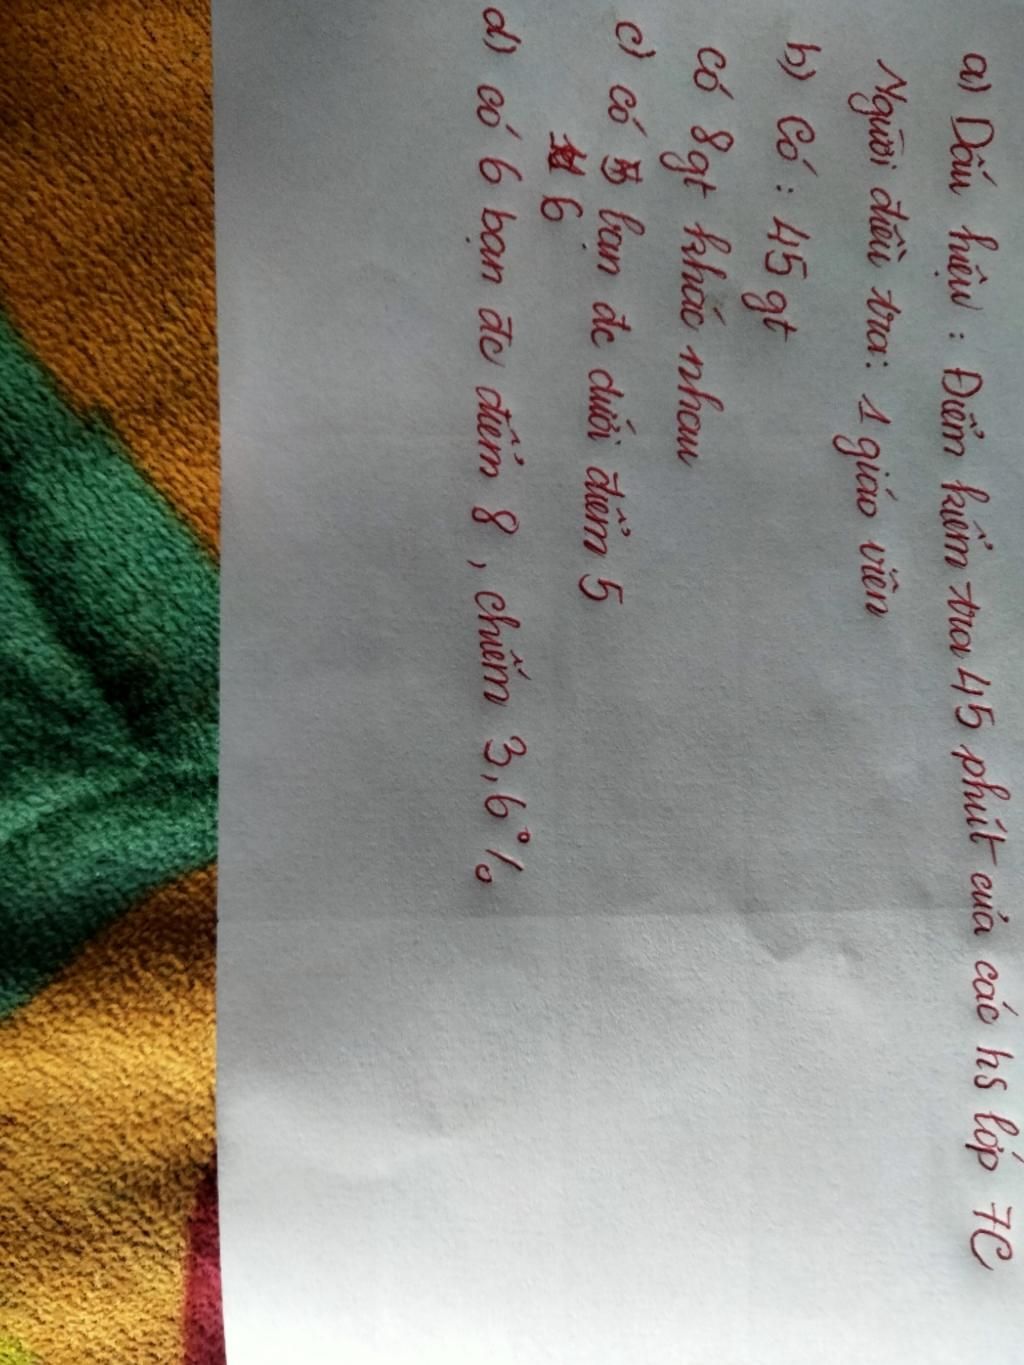 a) Dấu hiệu : Điểm kiểm tra 45 phút của các hs lớp 7C
Người điều tra: 1 giáo viên
b) Có : 45 gt
có 8gt khác nhau
c) có bạn đc dưới điểm 5
6
d) có 6 bạn đc điểm 8, chiếm 3,6%